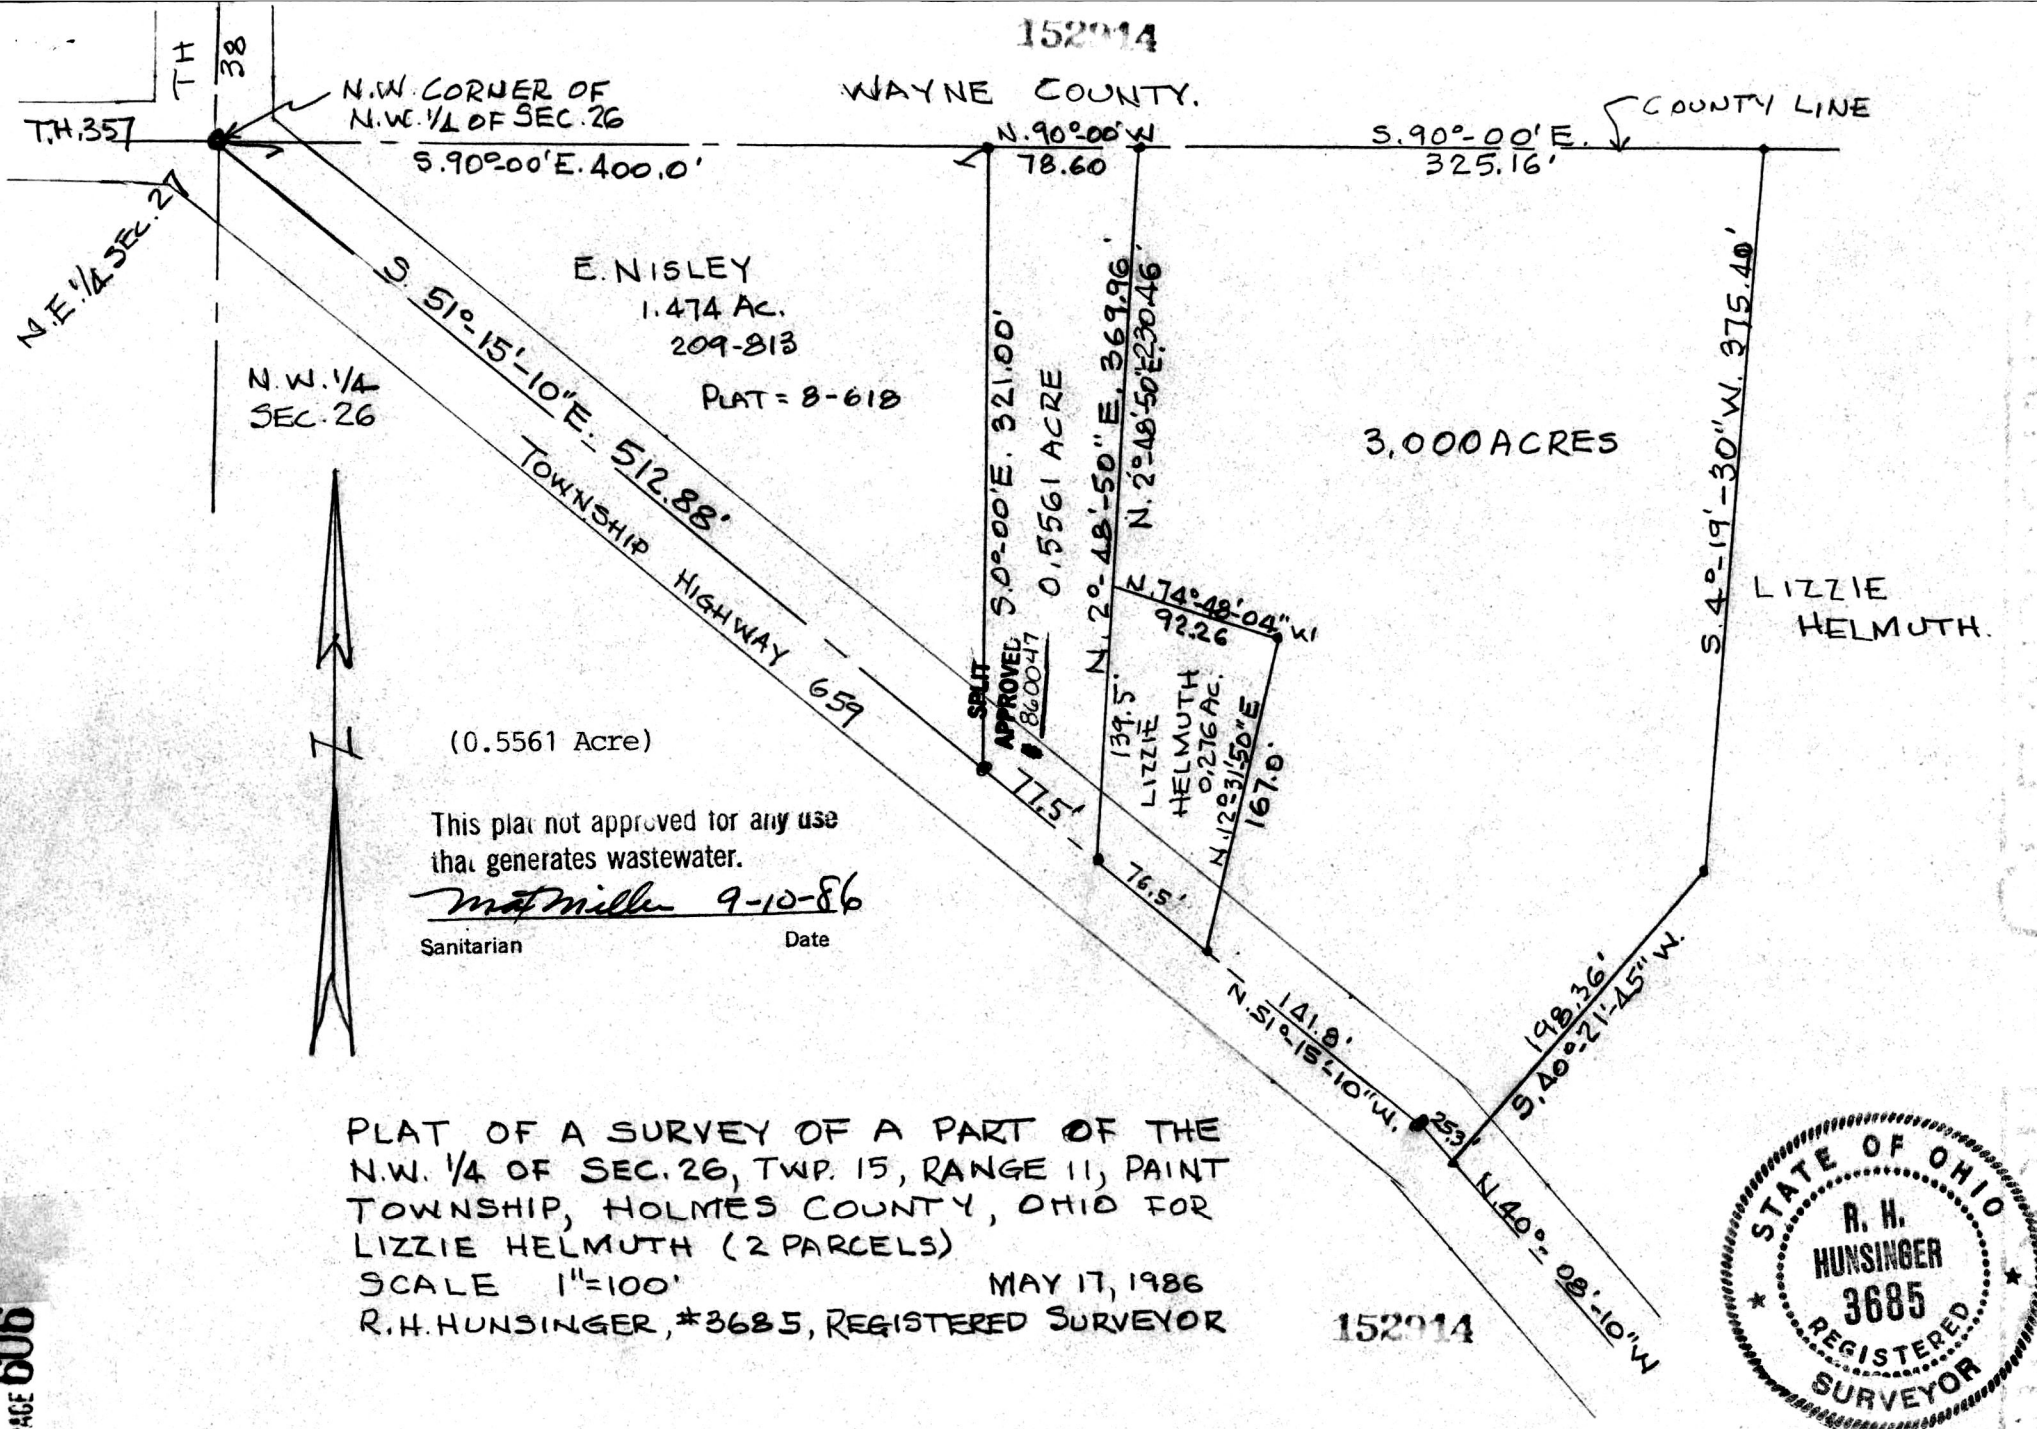 152914
TH
38
N.W. CORNER OF
N.W. 1/4 OF SEC. 26
WAYNE COUNTY.
COUNTY LINE
T.H. 357
S. 90°-00' E. 400.0'
N. 90°-00' W
78.60
S. 90°-00' E.
325.16'
N.E. 1/4 SEC. 27
N.W. 1/4
SEC. 26
E. NISLEY
1.474 AC.
209-813
PLAT = 8-618
S. 51°-15'-10" E. 512.88'
TOWNSHIP HIGHWAY 659
S. 0°-00' E. 321.00'
0.5561 ACRE
N. 2°-48'-50" E. 369.96'
N. 2°-48'-50" E. 230.46'
3.000 ACRES
S. 4°-19'-30" W. 375.40'
LIZZIE
HELMUTH.
N. 74°-48'-04" W
92.26
SPLIT
APPROVED
# 860047
139.5'
LIZZIE
HELMUTH
0.276 AC.
N. 12°-31'-50" E
167.0'
77.5'
76.5'
N
(0.5561 Acre)
This plat not approved for any use
that generates wastewater.
9-10-86
Sanitarian
Date
141.8'
N. 51°-15'-10" W.
25.3'
198.36'
S. 40°-21'-45" W.
N. 40°-08'-10" W
PLAT OF A SURVEY OF A PART OF THE
N.W. 1/4 OF SEC. 26, TWP. 15, RANGE 11, PAINT
TOWNSHIP, HOLMES COUNTY, OHIO FOR
LIZZIE HELMUTH (2 PARCELS)
SCALE 1"=100' MAY 17, 1986
R.H. HUNSINGER, #3685, REGISTERED SURVEYOR
152914
STATE OF OHIO
R. H.
HUNSINGER
3685
REGISTERED
SURVEYOR
PAGE 606